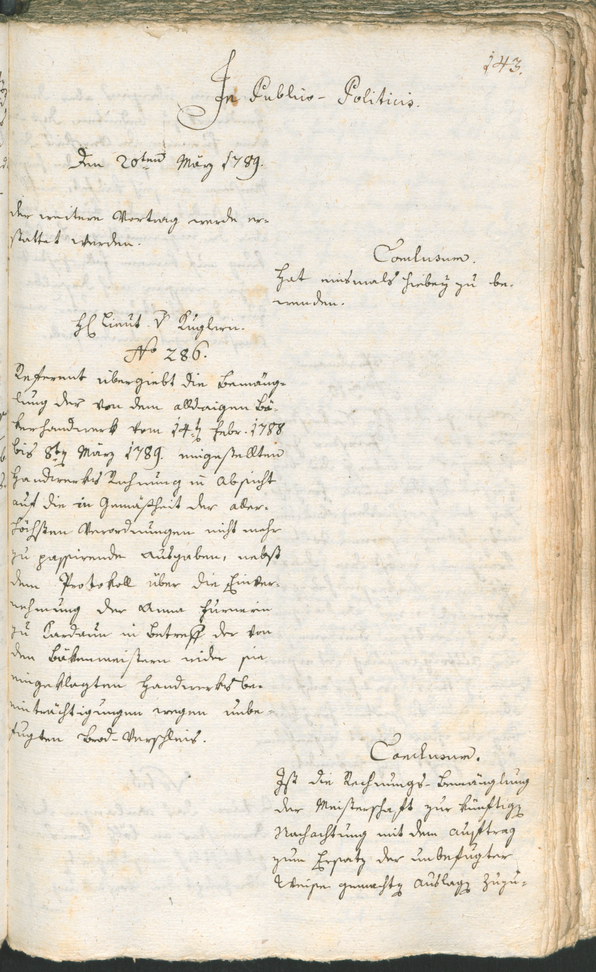 143.
In Publico-Politicis.
Den 20ten März 1789.
der weitere Vortrag werde er-
stattet werden.
Conclusum.
Hat einsmals hiebey zu be-
wenden.
H. Lieut. v. Kuglern.
No 286.
Referent übergiebt die Bemäng-
lung der von dem alldaigen Bä-
kerhandwerk vom 14t. Febr. 1788
bis 8t. März 1789. eingestellten
Handwerks Rechnung in Absicht
auf die in Gemäßheit der aller-
höchsten Verordnungen nicht mehr
zu passirende Ausgaben, nebst
dem Protokoll über die Einver-
nehmung der Anna
zu Kardaun in Betreff der von
den Bäkenmeistern wider sie
eingeklagten Handwerksbe-
einträchtigungen wegen unbe-
fugten Brod-Verschleis.
Conclusum.
Ist die Rechnungs-Bemänglung
der Meisterschaft zur künftigen
Nachachtung mit dem Auftrag
zum Ersatz der unbefugter
Weise gemachten Auslagen zuzu-